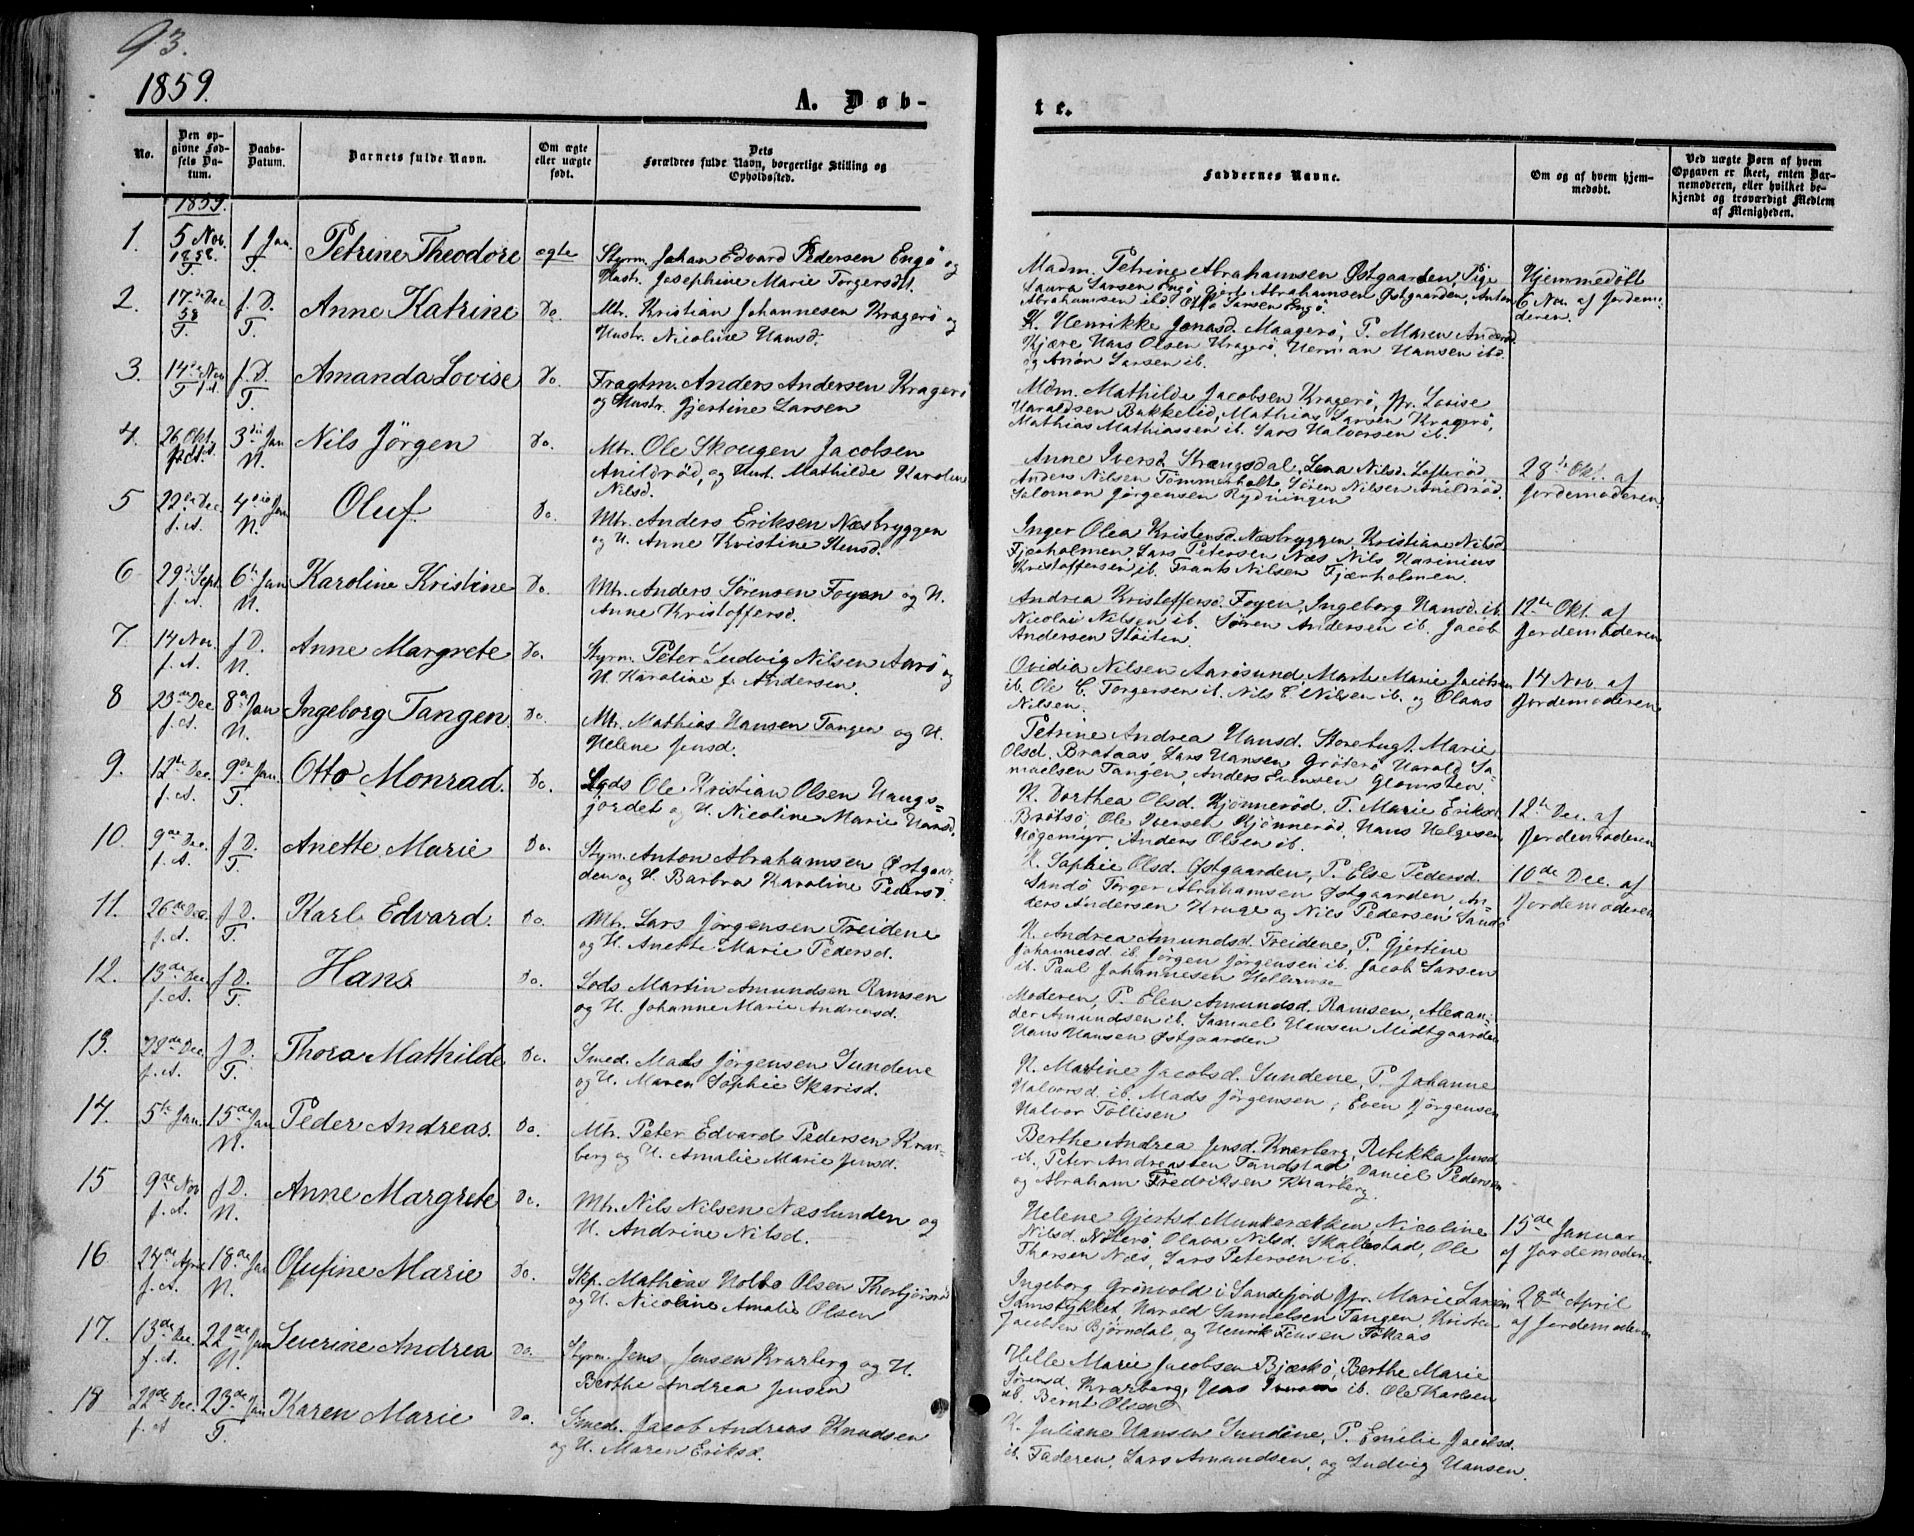 93.
1859.
A. Døb-
te.
No.
Den op-
givne Fød-
sels Da-
tum.
Daabs-
Datum.
Barnets fulde Navn.
Om ægte
eller uægte
født.
Dets
Forældres fulde Navn, borgerlige Stilling og
Opholdssted.
Faddernes Navne.
Om og af hvem hjem-
medøbt.
Ved uægte Børn af hvem
Opgaven er skeet, enten Bar-
nemoderen, eller hvilket be-
kjendt og troværdigt Medlem
af Menigheden.
1859.
1. 5 Nov. 1858. T. 1 Jan. T. Petrine Theodore ægte Styrm. Johan Edvard Pedersen Engö og
Hustr. Josephine Marie Torgersdt.
Madm. Petrine Abrahamsen Østgaarden, Pige
Laura Larsen Engö, Gjert Abrahamsen Østgaarden, Anton
Abrahamsen ibd. Otto Larsen Engö.
Hjemmedöbt
6 Nov. af Jordemo-
deren.
2. 17de Dec 58 T. f. D. T. Anne Katrine Do. Mtr. Kristian Johannesen Kragerö og
Hustr. Nicoline Hansd.
K. Henrikke Jonasd. Maagerö, P. Maren Andersd
Kjære Hans Olsen Kragerö, Herman Hansen ibd.
og Anön Larsen ib.
3. 14de Nov f. A. f. D. T. Amanda Lovise Do. Fragtm. Anders Andersen Kragerö
og Hustr. Gjertine Larsen
Mdm. Mathilde Jacobsen Kragerö, Jfr. Lovise
Haraldsen Bakkelid, Mathias Larsen Kragerö,
Mathias Mathiassen ib. Lars Halvorsen ib.
4. 26 Okt. 3die Jan N. Nils Jörgen Do. Mtr. Ole Skougen Jacobsen
Anildröd, og Hust. Mathilde Karoline
Nilsd.
Anne Iversd. Strengsdal, Lena Nilsd. Lofteröd,
Anders Nilsen Tömmerholt, Sören Nilsen Anildröd.
Salomon Jörgensen Rydningen
28de Okt. af
Jordemoderen.
5 22de Dec f. A. 4die Jan N. Oluf Do. Mtr. Anders Eriksen Næsbryggen
og H. Anne Kristine Stensd.
Inger Olea Kristensd. Næsbryggen, Kristiane Nilsd
Fjærholmen, Lars Petersen Næs, Nils Karinius
Kristoffersen ib. Frants Nilsen Fjærholmen.
6 29de Sept f. A. 6te Jan N. Karoline Kristine Do. Mtr. Anders Sörensen Foyen og H.
Anne Kristoffersd.
Andrea Kristoffersd. Foyen, Ingeborg Hansd. ib.
Nicolai Nilsen ib. Sören Andersen ib. Jacob
Andersen Stöiten
12te Okt. af
Jordemoderen
7. 14 Nov. f. A. f. D. N. Anne Margrete Do. Styrm. Peter Ludvig Nilsen Aarö og
H. Karoline f. Andersen.
Ovidia Nilsen Aarösund, Marte Marie Jacobsen
ib. Ole C. Torgersen ib. Nils C. Nilsen ib. og Olaus
Nilsen.
14 Nov. af
Jordemoderen
8 23de Dec f. A. 8de Jan N. Ingeborg Tangen. Do. Mtr. Mathias Hansen Tangen og H.
Helene Jensd.
Petrine Andrea Hansd. Storebugt, Marie
Olsd. Brataas, Lars Hansen Gröterö, Harald Sa-
muelsen Tangen, Anders Evensen Glomsten.
9. 12te Dec. f. A. 9de Jan. T. Otto Monrad. Do. Lods Ole Kristian Olsen Haugs-
jordet og H. Nicoline Marie Hansd.
K. Dorthea Olsd. Kjönneröd, P. Marie Eriksd
Brötsö, Ole Iversen Kjönneröd, Hans Helgesen
Högemyr, Anders Olsen ib.
12te Dec. af
Jordemoderen
10. 9de Dec. f. A. f. D. T. Anette Marie Do. Styrm. Anton Abrahamsen Østgaar-
den og H. Barbra Karoline Pedersd.
K. Sophie Olsd. Østgaarden, P. Else Pedersd.
Sandö, Torger Abrahamsen Østgaarden, An-
ders Andersen Kruge og Nils Pedersen Sandö
10de Dec. af
Jordemoderen
11. 26de Dec. f. A. f. D. T. Karl Edvard. Do. Mtr. Lars Jörgensen Treidene
og H. Anette Marie Pedersd.
K. Andrea Amundsd. Treidene, P. Gjertine
Johannesd. ib. Jörgen Jörgensen ib. Jacob Larsen
ib. Paul Johannesen Hellemoe
12. 13de Dec f. A. f. D. T. Hans. Do. Lods Martin Amundsen Ramsen
og H. Johanne Marie Andreasd.
Moderen, P. Elen Amundsd. Ramsen, Alexan-
der Amundsen ib. Samuel Hansen Midtgaarden
Hans Hansen Østgaarden
13. 29de Dec. f. A. f. D. T. Thora Mathilde Do. Smed. Mads Jörgensen Sundene
og H. Maren Sophie Skarisd.
K. Martine Jacobsd. Sundene, P. Johanne
Halvorsd. ib. Mads Jörgensen, Even Jörgensen
Halvor Tollisen
14. 5te Jan. 15de Jan N. Peder Andreas. Do. Mtr. Peter Edvard Pedersen Knar-
berg og H. Amalie Marie Jensd.
Berthe Andrea Jensd. Knarberg, Rebekka Jensd.
ib. Peter Andreasten Tandstad, Daniel Pedersen
og Abraham Fredriksen Knarberg.
15 9de Nov f. A. f. D. N. Anne Margrete Do. Mtr. Nils Nilsen Næslunden og
H. Andrine Nilsd.
Helene Gjertsd. Munkerækken, Nicoline
Nilsd. Nöterö Olava Nilsd. Skallestad, Ole
Thorsen Næs, Lars Petersen ib.
15de Januar
af Jordemoderen
16 24de April f. A. 18de Jan N. Olufine Marie Do. Skp. Mathias Holbo Olsen Thorbjörnsröd
og H. Nicoline Amalie Olsen
Ingeborg Grönvold i Sandefjord, Jfr. Marie Larsen
Samstykket, Harald Samuelsen Tangen, Kristen
Jacobsen Björndal, og Henrik Jensen Fokaas
28de April
af Jordemoderen
17. 13de Dec. f. A. 22de Jan N. Severine Andrea Do. Styrm. Jens Jensen Knarberg og H.
Berthe Andrea Jensen
Helle Marie Jacobsen Bjærkö, Berthe Marie
Sörensd. Knarberg, Jens Iversen ib. Ole Karlsen
ib. Bernt Olsen
18 22de Dec. f. A 23de Jan T. Karen Marie Do. Smed. Jacob Andreas Knudsen
og H. Maren Eriksd.
K. Juliane Hansen Sundene, P. Emelie Jacobsd.
ib. Faderen, Lars Amundsen, og Ludvig Hansen.